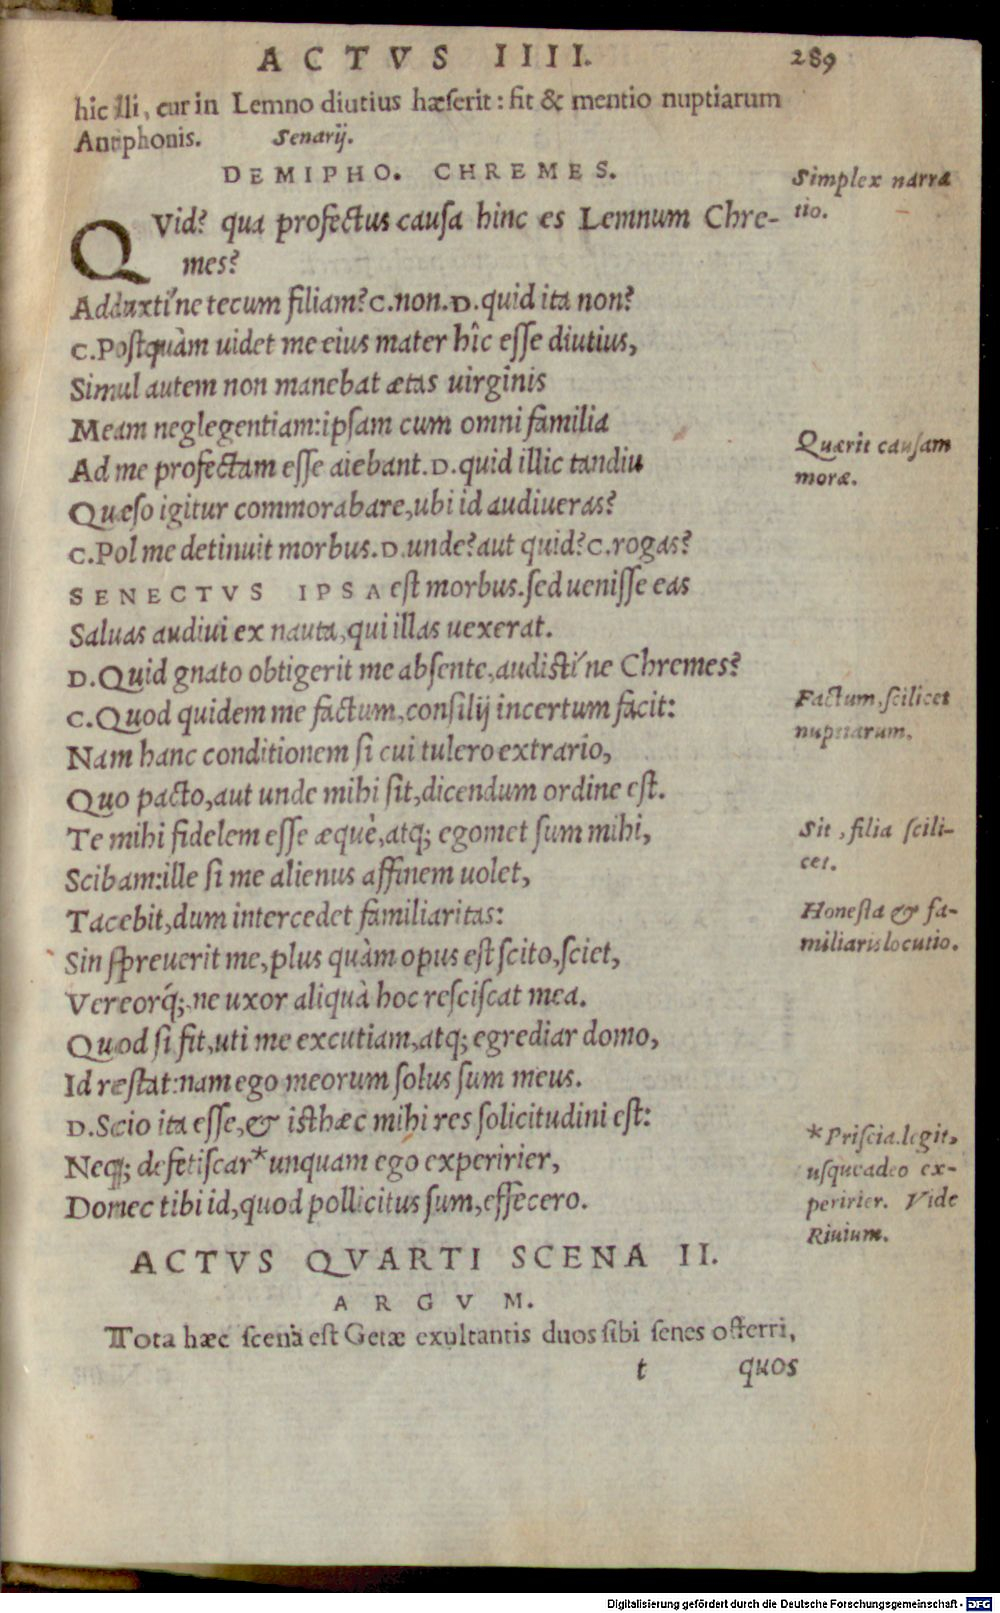 ACTVS IIII. 289
hic illi, cur in Lemno diutius hæserit: fit & mentio nuptiarum
Antiphonis. Senarij.
DEMIPHO. CHREMES.
Simplex narra
tio.
QVid? qua profectus causa hinc es Lemnum Chre-
mes?
Adduxti'ne tecum filiam? C. non. D. quid ita non?
C. Postquàm uidet me eius mater hîc esse diutius,
Simul autem non manebat ætas uirginis
Meam neglegentiam: ipsam cum omni familia
Ad me profectam esse aiebant. D. quid illic tandiu
Quærit causam
moræ.
Quæso igitur commorabare, ubi id audiueras?
C. Pol me detinuit morbus. D. unde? aut quid? C. rogas?
SENECTVS IPSA est morbus. sed uenisse eas
Saluas audiui ex nauta, qui illas uexerat.
D. Quid gnato obtigerit me absente, audisti'ne Chremes?
C. Quod quidem me factum, consilij incertum facit:
Factum, scilicet
nuptiarum.
Nam hanc conditionem si cui tulero extrario,
Quo pacto, aut unde mihi sit, dicendum ordine est.
Te mihi fidelem esse æquè, atq; egomet sum mihi,
Sit, filia scili-
cet.
Scibam: ille si me alienus affinem uolet,
Tacebit, dum intercedet familiaritas:
Honesta & fa-
miliaris locutio.
Sin spreuerit me, plus quàm opus est scito, sciet,
Vereorq́;, ne uxor aliquà hoc resciscat mea.
Quod si fit, uti me excutiam, atq; egrediar domo,
Id restat: nam ego meorum solus sum meus.
D. Scio ita esse, & isthæc mihi res solicitudini est:
Neq; defetiscar* unquam ego experirier,
*Priscia. legit,
usqueadeo ex-
peririer. Vide
Riuium.
Donec tibi id, quod pollicitus sum, effecero.
ACTVS QVARTI SCENA II.
ARGVM.
Tota hæc scena est Getæ exultantis duos sibi senes offerri,
t quos
Digitalisierung gefördert durch die Deutsche Forschungsgemeinschaft - DFG